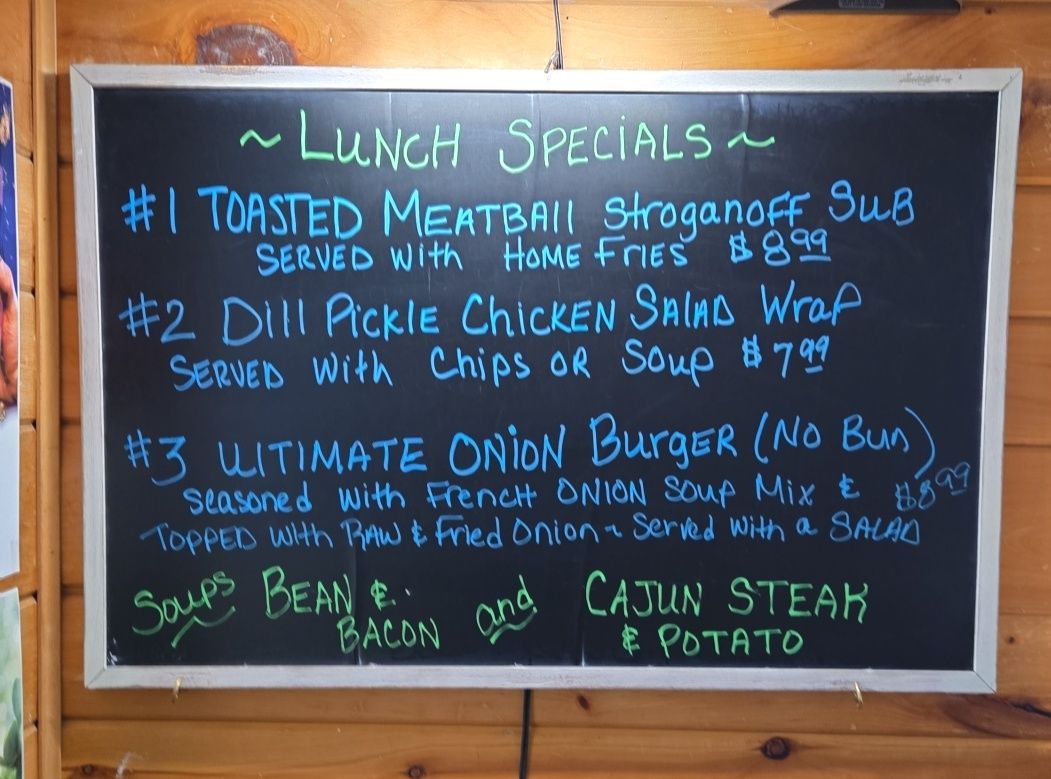 ~ LUNCH SPECIALS ~
#1 TOASTED MEATBALL Stroganoff SUB
SERVED with HOME FRIES $8.99
#2 Dill PICKLE ChicKEN SALAD Wrap
SERVED with Chips OR Soup $7.99
#3 ULTIMATE ONION BurgER (NO Bun)
seasoned with FrencH ONION Soup Mix & $8.99
TOPPED with RAW & Fried Onion ~ Served with a SALAD
Soups BEAN & BACON and CAJUN STEAK & POTATO